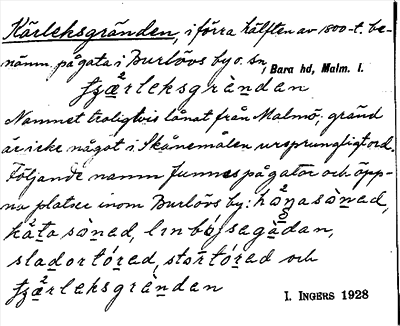 Kärleksgränden, i förra hälften av 1800-t. be-
nämn. på gata i Burlövs by o. sn, Bara hd, Malm. l.
Namnet troligtvis lånat från Malmö; gränd
är icke något i Skånemålen ursprungligt ord.
Följande namn funnes på gator och öpp-
na platser inom Burlövs by: hönasònad,
kåtasònad, linbósagådan,
sladortórad, stortórad och
tzärleksgrändan
I. INGERS 1928